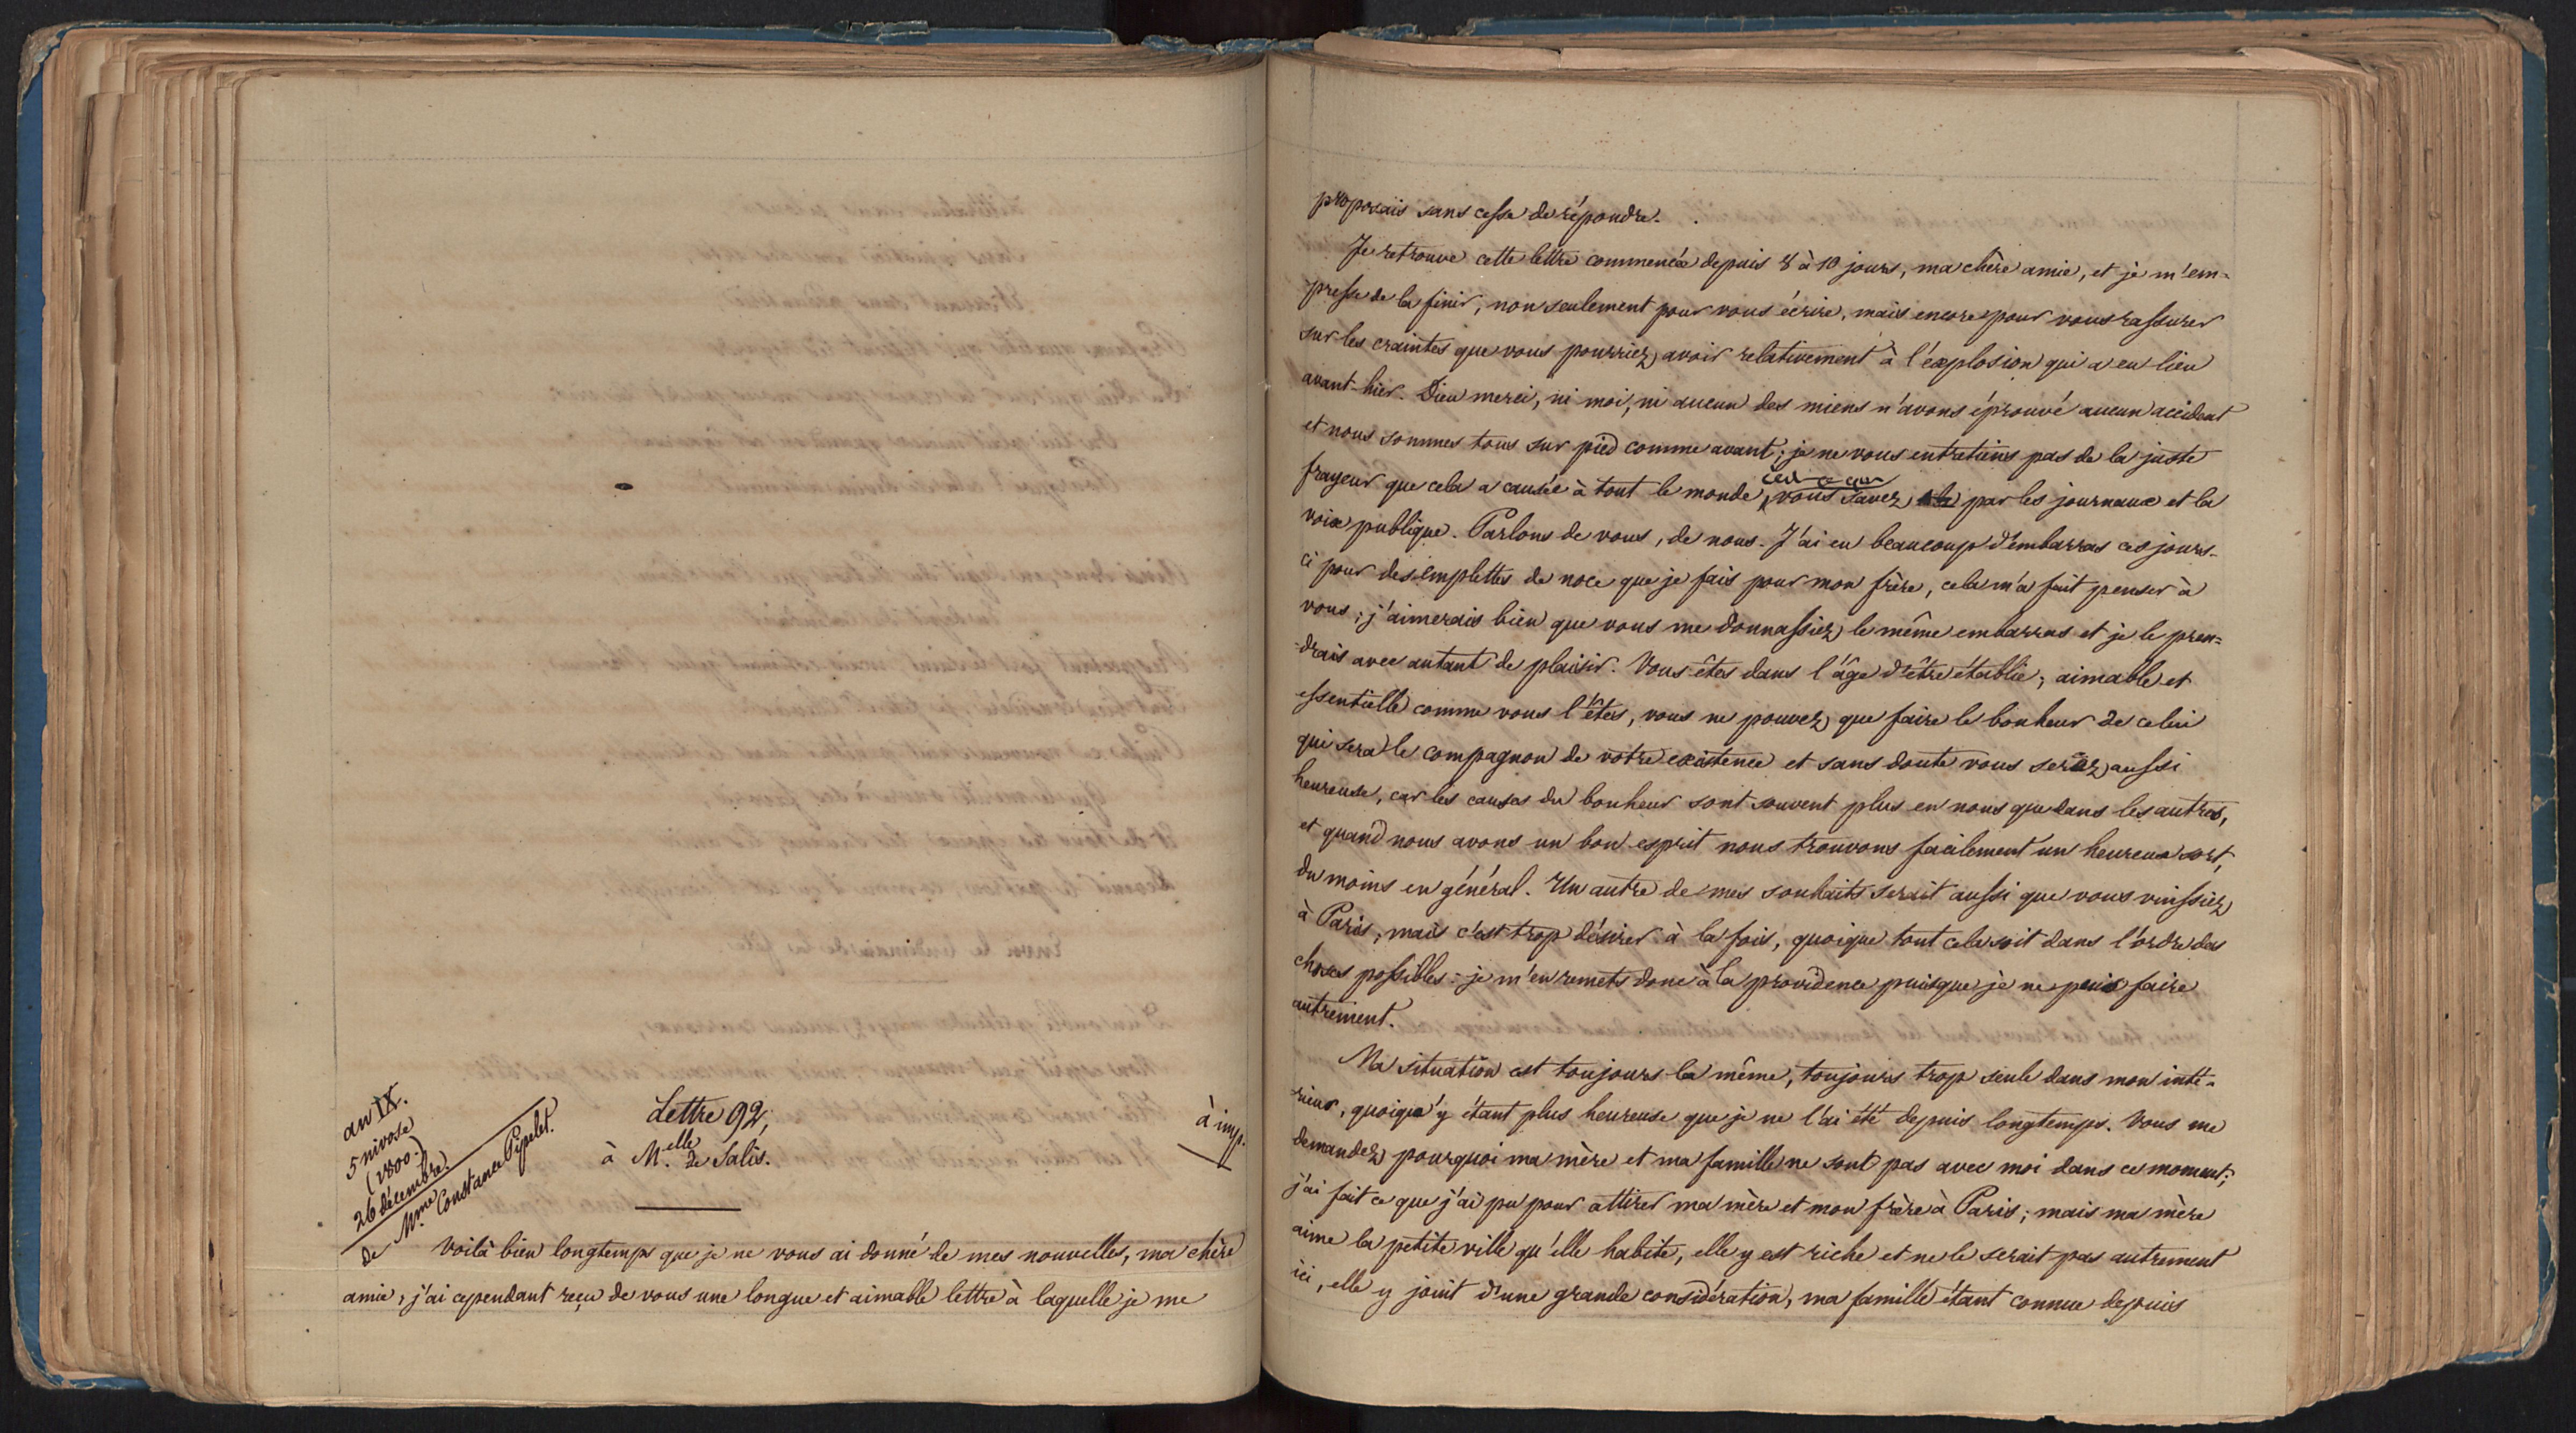 an IX.
5 nivose
(1800.)
26 décembre.
de Mme Constance Pipelet.
Lettre 92,
à M.elle de Salis.
à imp.
Voilà bien longtemps que je ne vous ai donné de mes nouvelles, ma chère
amie, j'ai cependant reçu de vous une longue et aimable lettre à laquelle je me
proposais sans cesse de répondre.
Je retrouve cette lettre commencée depuis 8 à 10 jours, ma chère amie, et je m'em=
presse de la finir, non seulement pour vous écrire, mais encore pour vous rassurer
sur les craintes que vous pourriez avoir relativement à l'explosion qui a eu lieu
avant-hier. Dieu merci, ni moi, ni aucun des miens n'avons éprouvé aucun accident
et nous sommes tous sur pied comme avant; je ne vous entretiens pas de la juste
frayeur que cela a causée à tout le monde, vous savez par les journaux et la
voix publique. Parlons de vous, de nous. J'ai eu beaucoup d'embarras ces jours-
ci pour des emplettes de noce que je fais pour mon frère, cela m'a fait penser à
vous; j'aimerais bien que vous me donnassiez le même embarras et je le pren=
drais avec autant de plaisir. Vous êtes dans l'âge d'être établie; aimable et
essentielle comme vous l'êtes, vous ne pouvez que faire le bonheur de celui
qui sera le compagnon de votre existence et sans doute vous serez aussi
heureuse, car les causes du bonheur sont souvent plus en nous que dans les autres,
et quand nous avons un bon esprit nous trouvons facilement un heureux sort,
du moins en général. Un autre de mes souhaits serait aussi que vous vinssiez
à Paris, mais c'est trop désirer à la fois, quoique tout cela soit dans l'ordre des
choses possibles: je m'en remets donc à la providence puisque je ne puis faire
autrement.
Ma situation est toujours la même, toujours trop seule dans mon inté-
rieur, quoiqu'y étant plus heureuse que je ne l'ai été depuis longtemps. Vous me
demandez pourquoi ma mère et ma famille ne sont pas avec moi dans ce moment;
j'ai fait ce que j'ai pu pour attirer ma mère et mon frère à Paris; mais ma mère
aime la petite ville qu'elle habite, elle y est riche et ne le serait pas autrement
ici, elle y jouit d'une grande considération, ma famille étant connue depuis